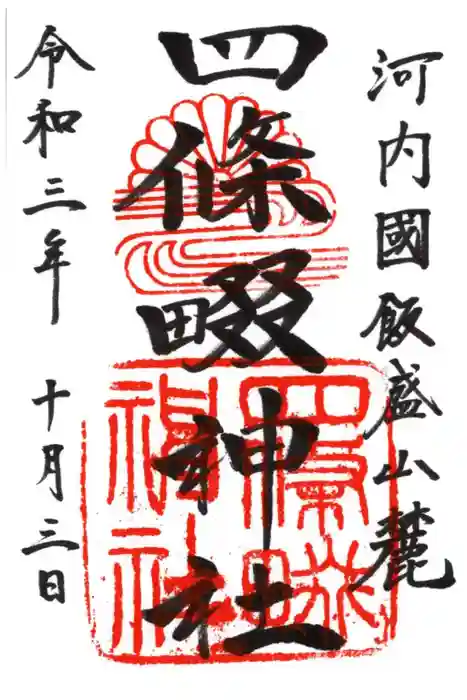 河内國飯盛山麓
四條畷神社
令和三年 十月三日